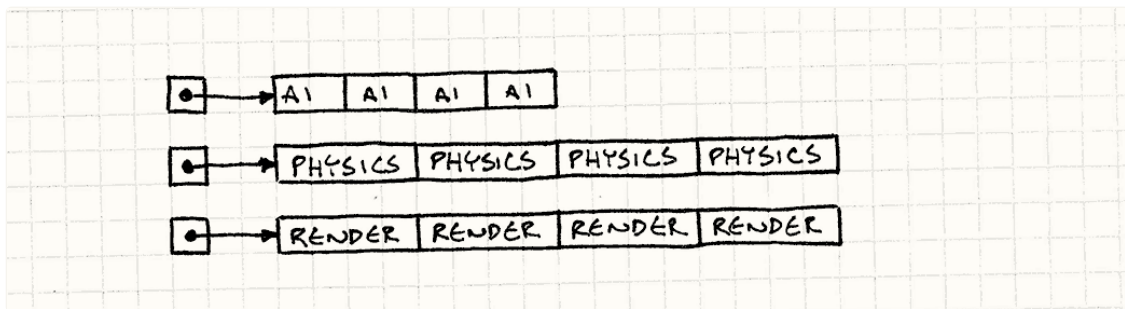 AI AI AI AI
PHYSICS PHYSICS PHYSICS PHYSICS
RENDER RENDER RENDER RENDER